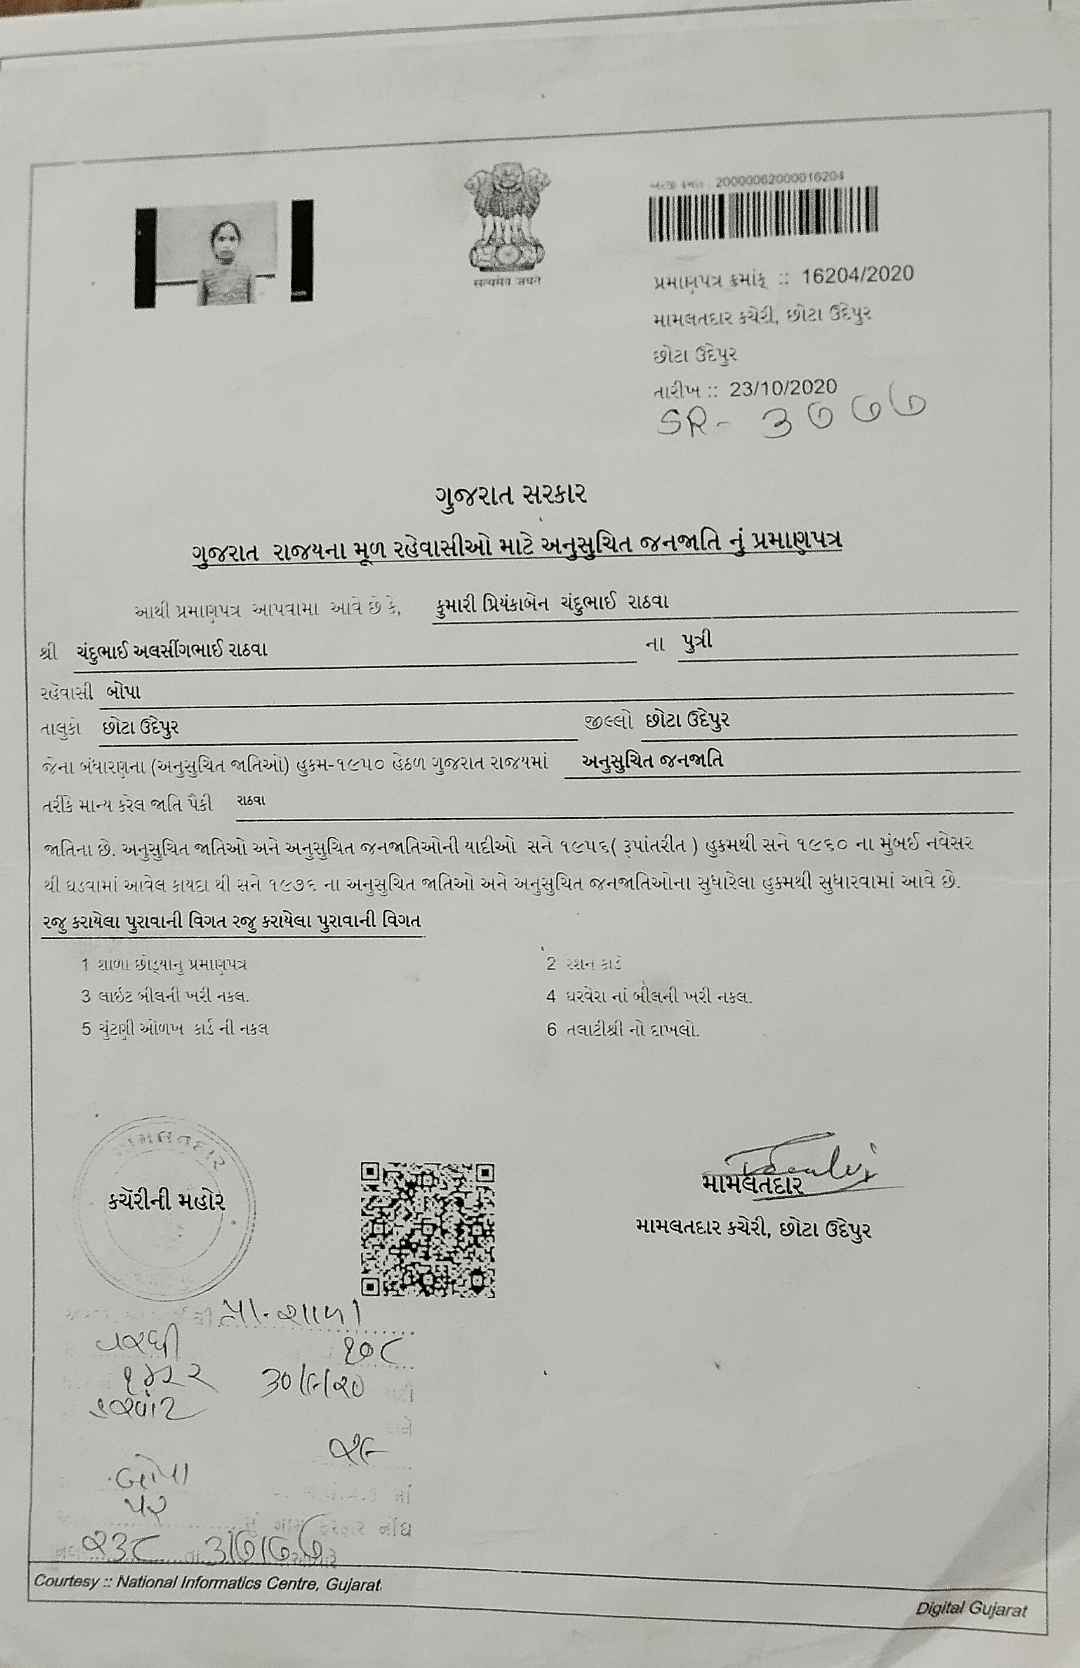 20000062000016204
सत्यमेव जयते
પ્રમાણપત્ર ક્રમાંક :: 16204/2020
મામલતદાર કચેરી, છોટા ઉદેપુર
છોટા ઉદેપુર
તારીખ :: 23/10/2020
SR- ૩૭૭૭
ગુજરાત સરકાર
ગુજરાત રાજયના મૂળ રહેવાસીઓ માટે અનુસુચિત જનજાતિ નું પ્રમાણપત્ર
આથી પ્રમાણપત્ર આપવામા આવે છે કે, કુમારી પ્રિયંકાબેન ચંદુભાઈ રાઠવા
શ્રી ચંદુભાઈ અલસીંગભાઈ રાઠવા ના પુત્રી
રહેવાસી બોપા
તાલુકો છોટા ઉદેપુર જીલ્લો છોટા ઉદેપુર
જેના બંધારણના (અનુસુચિત જાતિઓ) હુકમ-૧૯૫૦ હેઠળ ગુજરાત રાજયમાં અનુસુચિત જનજાતિ
તરીકે માન્ય કરેલ જાતિ પૈકી રાઠવા
જાતિના છે. અનુસુચિત જાતિઓ અને અનુસુચિત જનજાતિઓની યાદીઓ સને ૧૯૫૬( રૂપાંતરીત ) હુકમથી સને ૧૯૬૦ ના મુંબઈ નવેસર
થી ઘડવામાં આવેલ કાયદા થી સને ૧૯૭૬ ના અનુસુચિત જાતિઓ અને અનુસુચિત જનજાતિઓના સુધારેલા હુકમથી સુધારવામાં આવે છે.
રજુ કરાયેલા પુરાવાની વિગત રજુ કરાયેલા પુરાવાની વિગત
1 શાળા છોડ્યાનુ પ્રમાણપત્ર 2 રેશન કાર્ડ
3 લાઈટ બીલની ખરી નકલ. 4 ઘરવેરા નાં બીલની ખરી નકલ.
5 ચુંટણી ઓળખ કાર્ડ ની નકલ 6 તલાટીશ્રી નો દાખલો.
મામલતદાર
કચેરીની મહોર
મામલતદાર
મામલતદાર કચેરી, છોટા ઉદેપુર
પ્રા. શાળા
૧૭૮
બોપા
૫૨
૨૩૮ ૩૭૭૭
Courtesy :: National Informatics Centre, Gujarat
Digital Gujarat